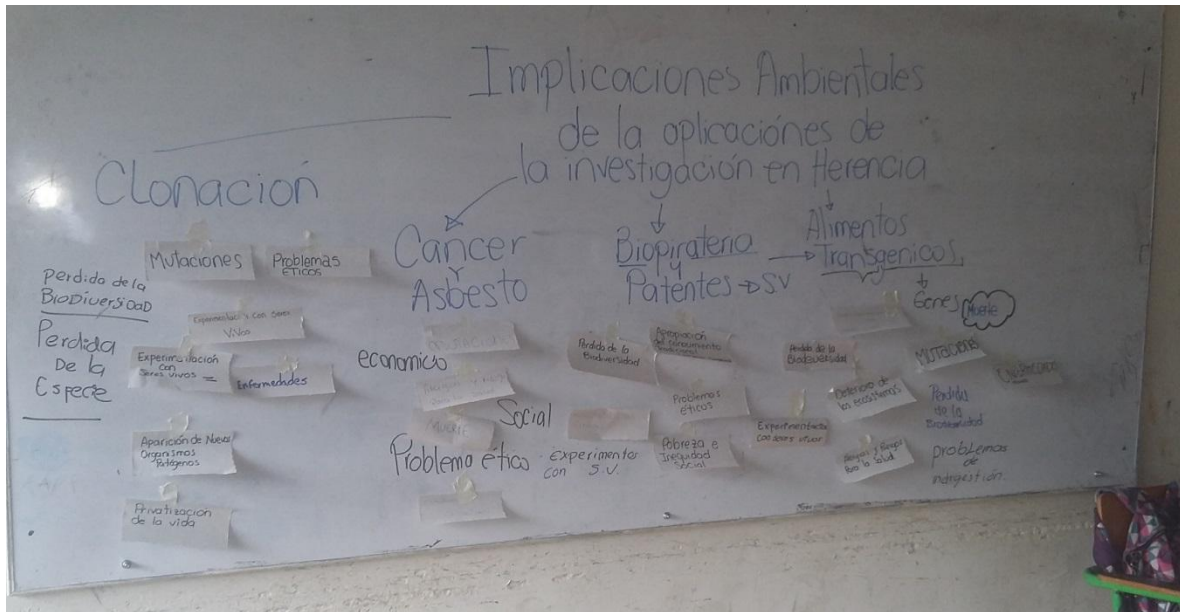 Implicaciones Ambientales
de la aplicaciónes de
la investigación en Herencia
Clonación
Mutaciones
Problemas
éticos
Perdida de la
BioDiversidaD
Perdida
De la
Especie
con seres
Vivos
Experimentación
con
seres vivos
Enfermedades
Aparición de Nuevos
Organismos
Patógenos
Privatización
de la vida
Cáncer
y
Asbesto
economico
Social
MUERTE
Problema ético
experimentos
con S.V.
Biopirateria
y
Patentes → SV
Perdida de la
Biodiversidad
Apropiación
del conocimiento
Problemas
éticos
Pobreza e
Inequidad
Social
Alimentos
Transgenicos
Genes
Muerte
Perdida de la
Biodiversidad
MUTACIONES
Deterioro de
los ecosistemas
Experimentación
con seres vivos
para la salud
Perdida
de la
Biodiversidad
problemas
de
indigestión.